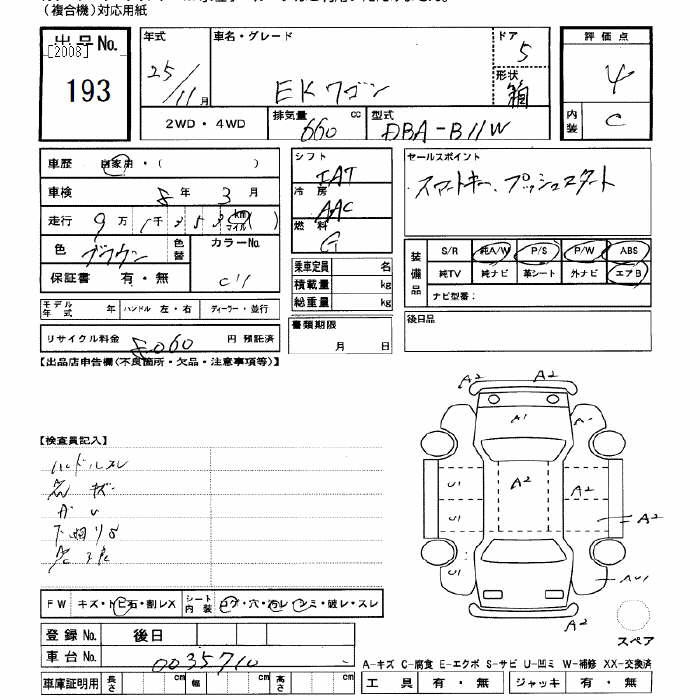 （複合機）対応用紙
出品No.
[2008]
193
年式
25/11月
車名・グレード
EKワゴン
ドア
5
形状
箱
2WD・4WD
排気量
660 cc
型式
DBA-B11W
評価点
4
内装
C
車歴 自家用・( )
車検 8年 3月
走行 9万 1千 km マイル
色 ブラウン
色替
カラーNo.
C11
保証書 有・無
モデル年式 年 ハンドル 左・右 ディーラー・並行
リサイクル料金 8060 円 預託済
シフト
IAT
冷房
AAC
燃料
G
乗車定員 名
積載量 kg
総重量 kg
書類期限
月 日
セールスポイント
スマートキー、プッシュスタート
装備品
S/R 純A/W P/S P/W ABS
純TV 純ナビ 革シート 外ナビ エアB
ナビ型番：
後日品
【出品店申告欄（不良箇所・欠品・注意事項等）】
【検査員記入】
ハンドルスレ
下廻りS
A2 A2
A1
U1 A2 A2
U1 A2
U1
A2
スペア
FW キズ・トビ石・割レX
シート内装 コゲ・穴・汚レ・シミ・破レ・スレ
登録No. 後日
車台No. 0035710
車庫証明用 長さ cm 幅 cm 高さ cm
A-キズ C-腐食 E-エクボ S-サビ U-凹ミ W-補修 XX-交換済
工具 有・無 ジャッキ 有・無